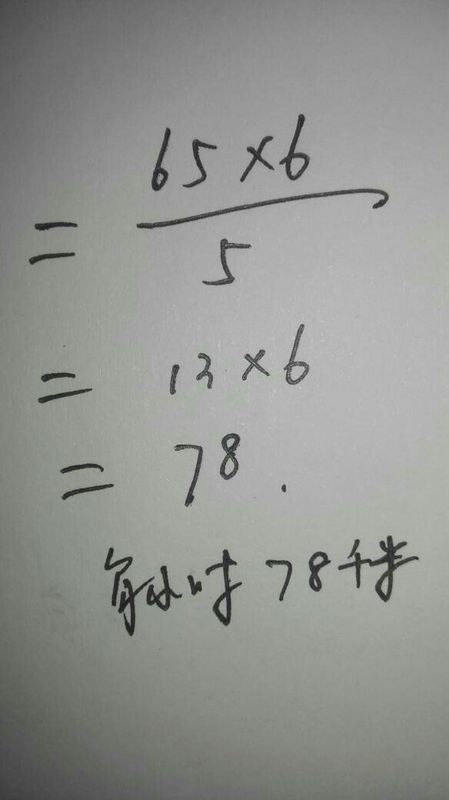 = 65×6
5
= 13×6
= 78.
每小时 78千米